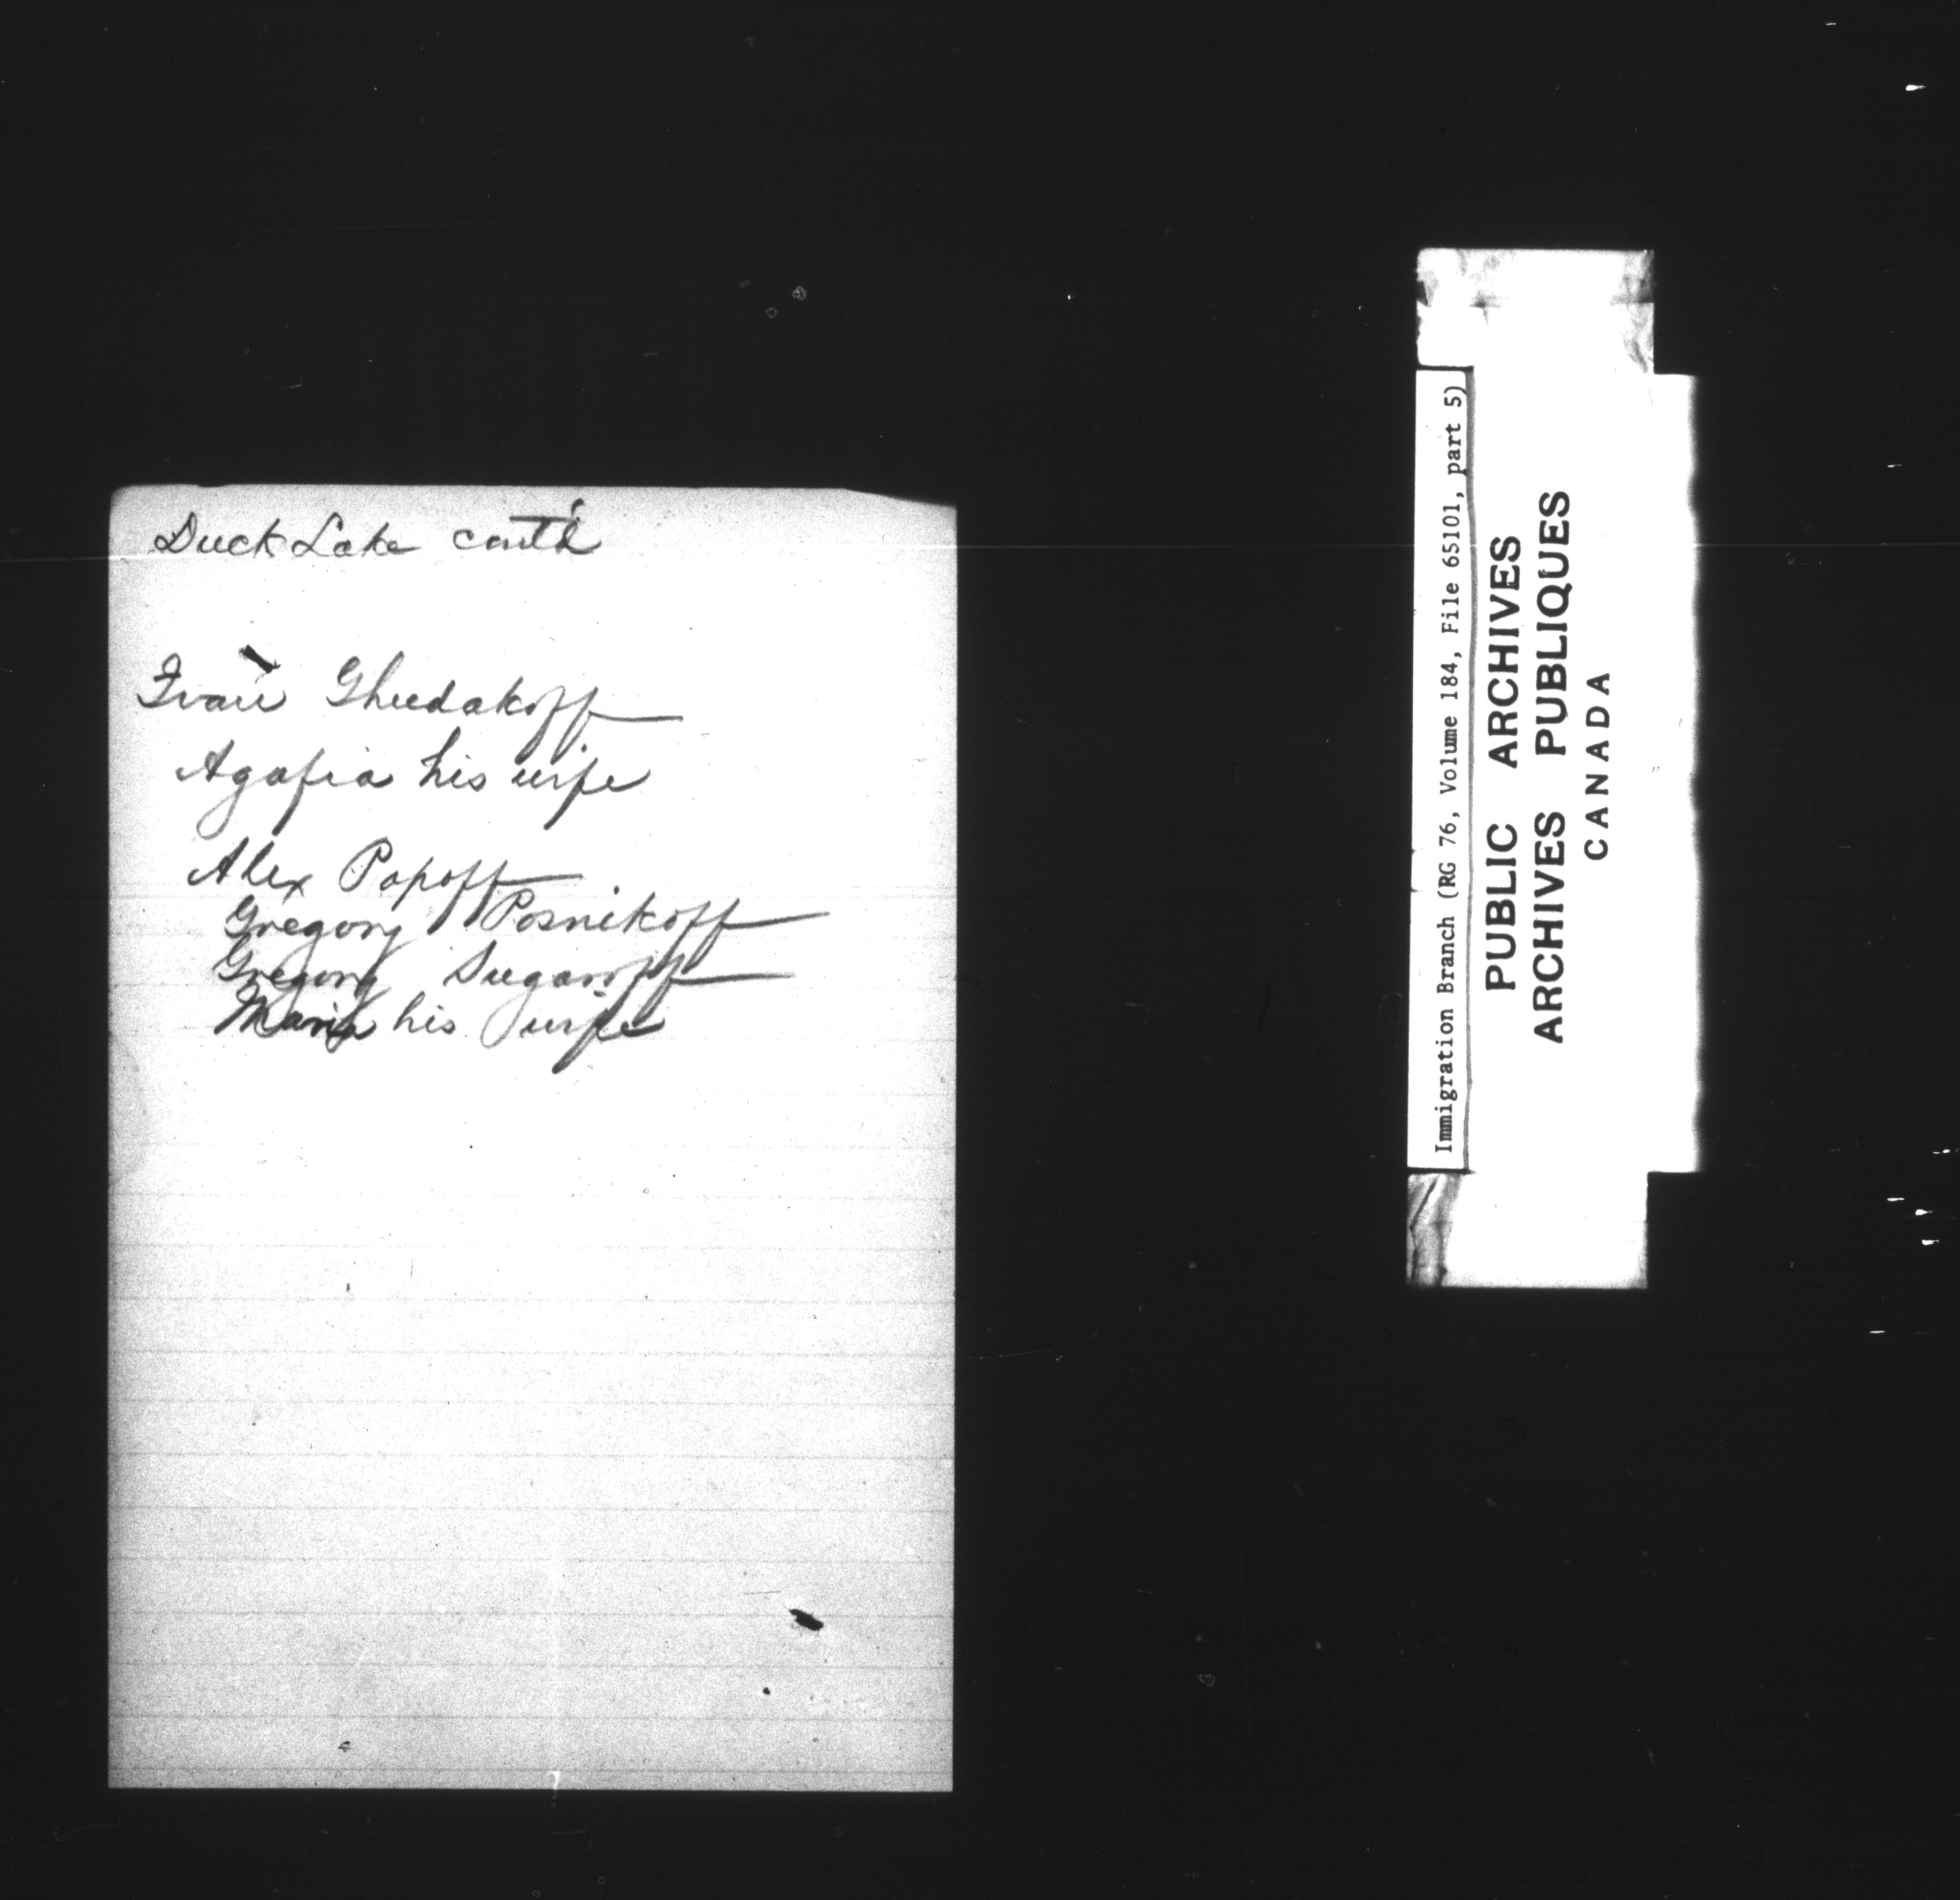 Duck Lake cont'd
Ivan Ghudakoff
Agafia his wife
Alex Popoff
Gregory Posnikoff
Gregory
Maria his wife
Immigration Branch (RG 76, Volume 184, File 65101, part 5)
PUBLIC ARCHIVES
ARCHIVES PUBLIQUES
CANADA